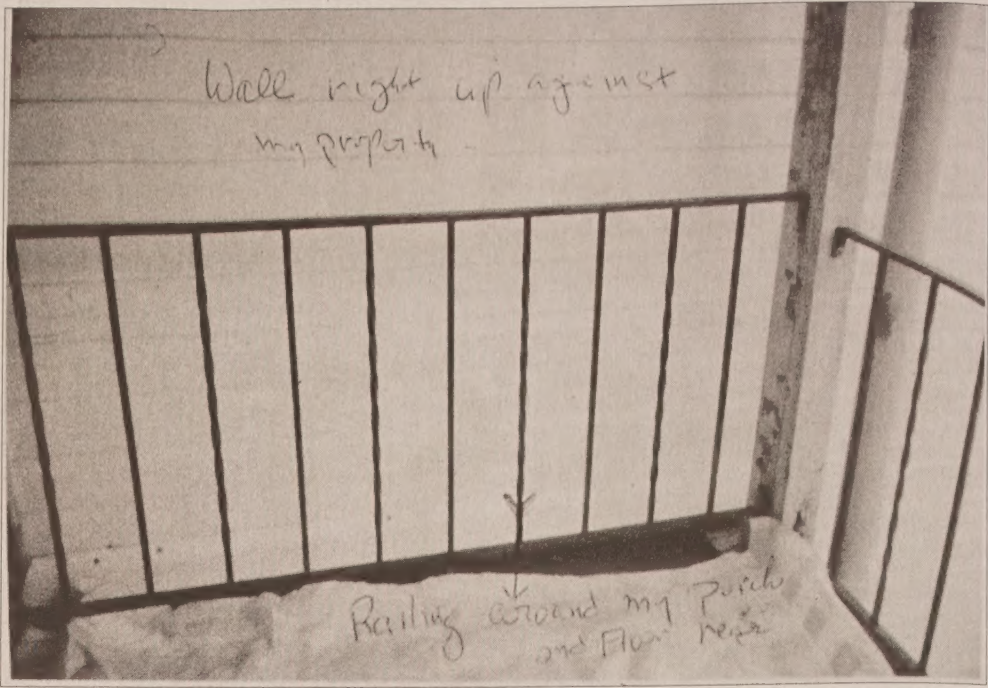 Wall right up against
my property
Railing around my porch
and Floor